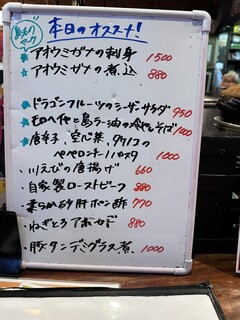 本日のオススメ!
★アオウミガメの刺身 1500
★アオウミガメの煮込 880
★ドラゴンフルーツのシーザーサラダ 950
★モロヘイヤと島ラー油の冷やしそば 1000
★唐辛子、空心菜、タケノコの
ペペロンチーノパスタ 1000
・川えびの唐揚げ 660
・自家製ローストビーフ 880
・柔らか砂肝ポン酢 770
・ねぎとろアボカド 880
・豚タンデミグラス煮 1000